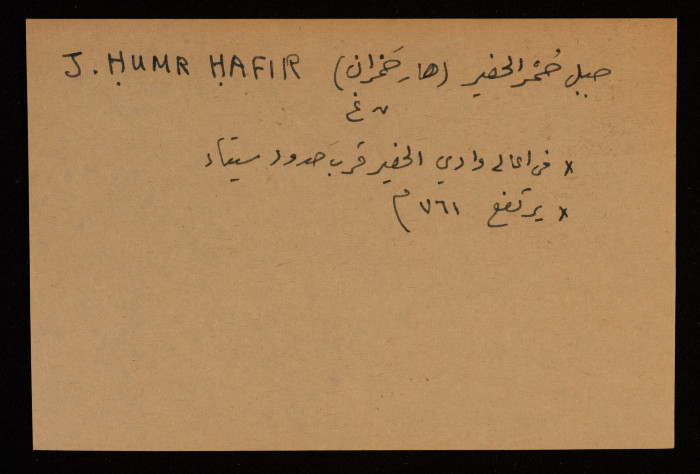 جبل حُمْر الحفير (هار حَمْران) J. ḤUMR ḤAFIR
ن غ
x في اعالي وادي الحفير قرب حدود سيناء
x يرتفع ٧٦١ م